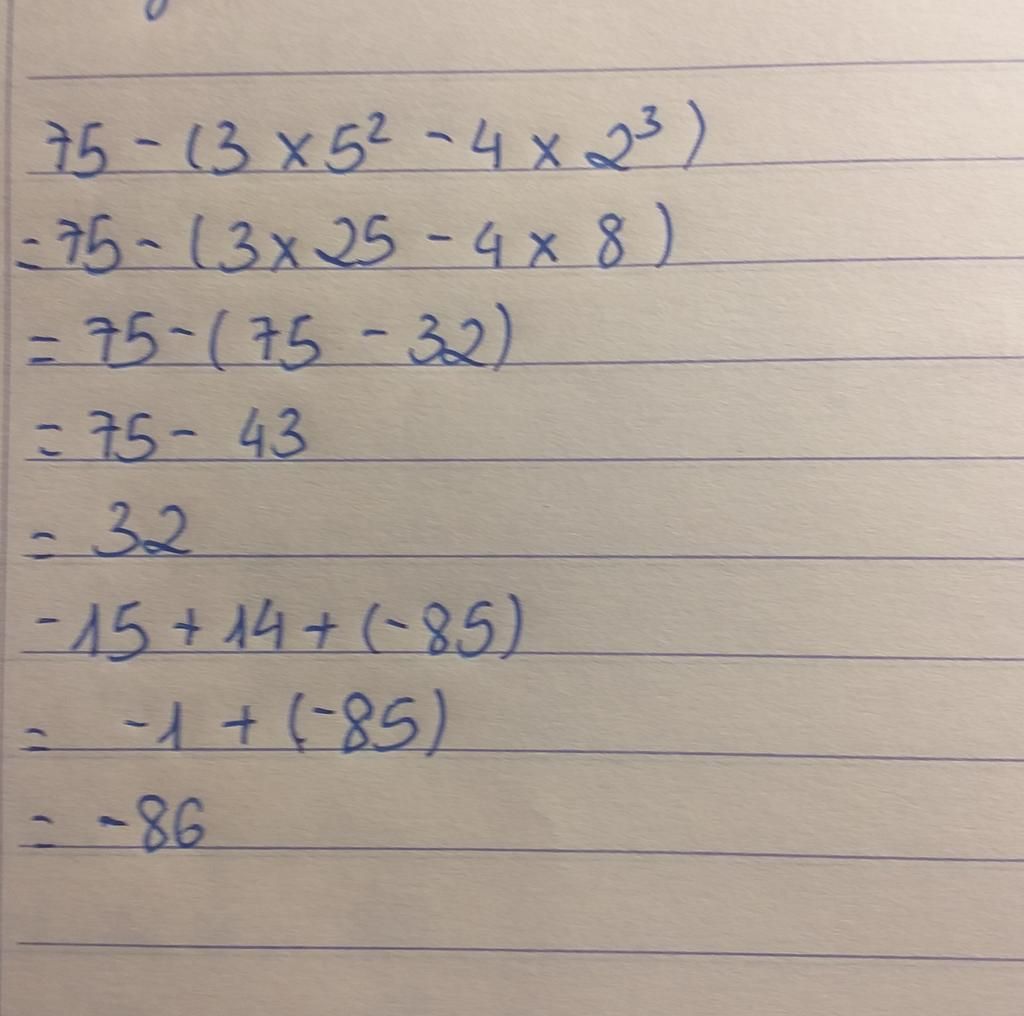 75 - (3 × 5² - 4 × 2³)
= 75 - (3 × 25 - 4 × 8)
= 75 - (75 - 32)
= 75 - 43
= 32
- 15 + 14 + (-85)
= -1 + (-85)
= -86